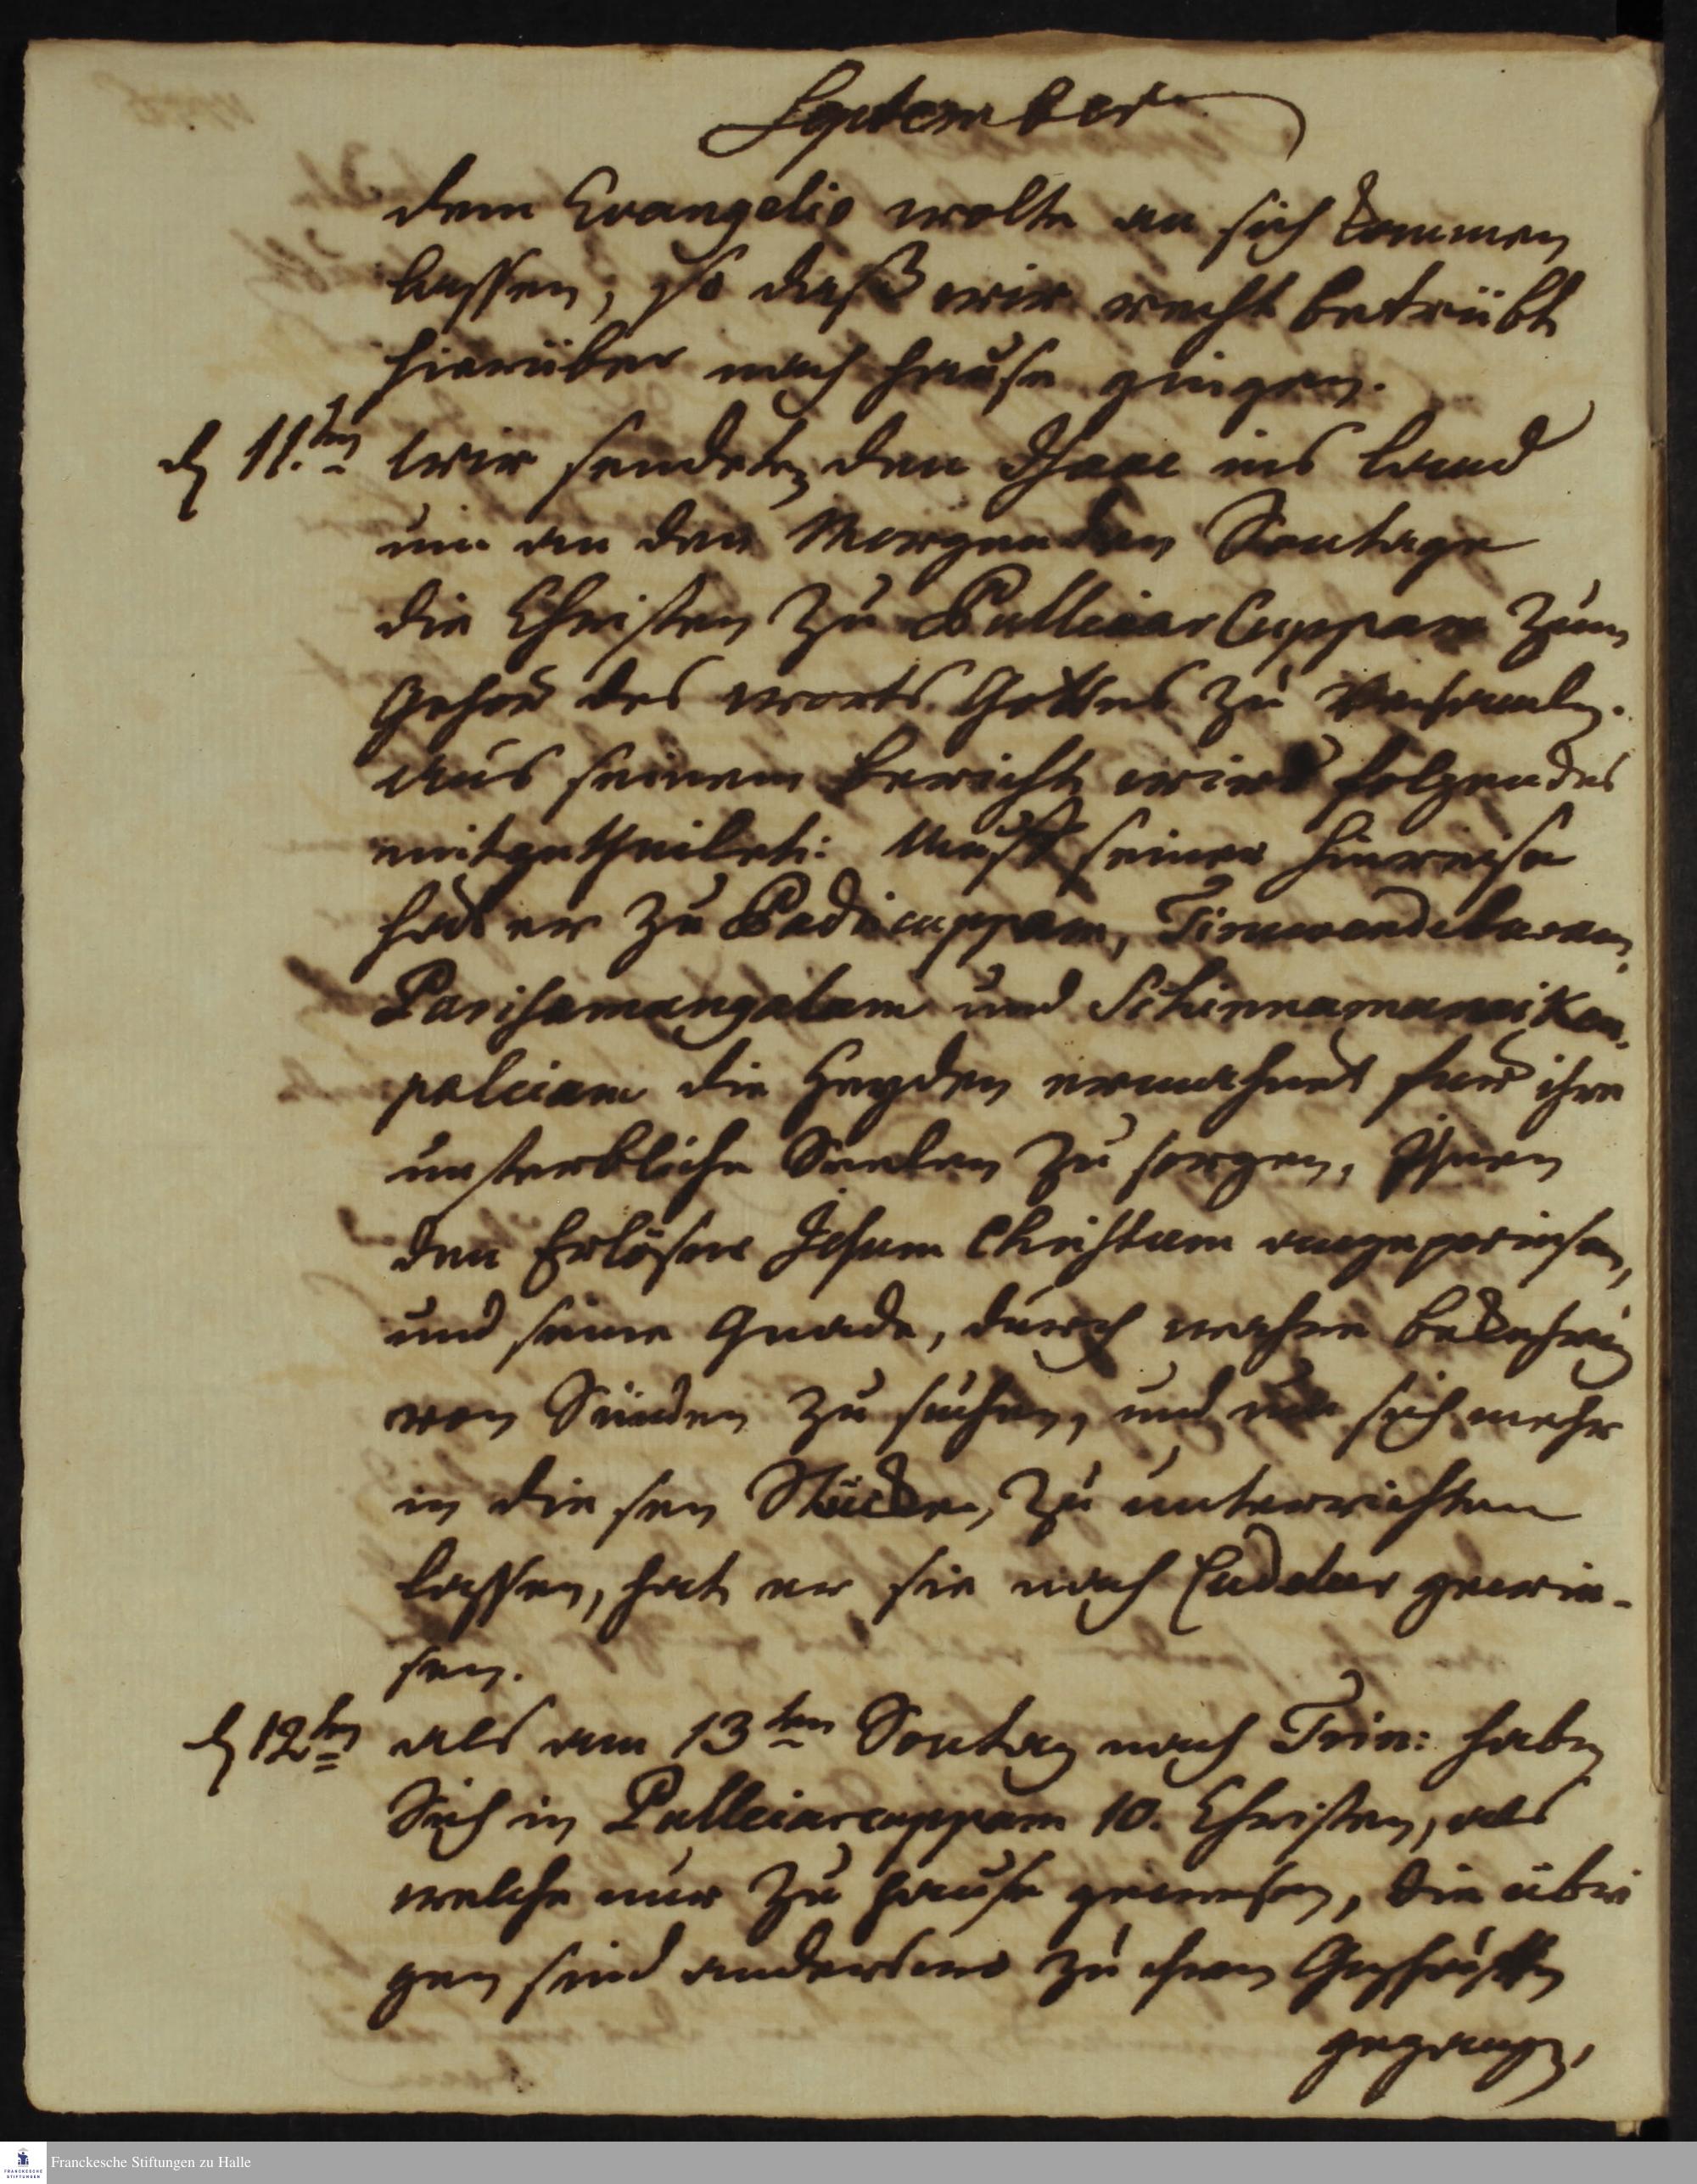 September
dem Evangelio wolte an sich kommen
lassen, so daß wir recht betrübt
hierüber nach hause gingen.
d 11.ten Wir sendeten den Isaac ins Land
um an den Morgenden Sontage
die Christen zu Pulleiar Cuppam zum
Gehör des worts Gottes zu versamlen.
aus seinem bericht wird folgendes
mitgetheilet: Auff seiner hinreise
hat er zu Padricuppam, Tiruwendeburam,
Parichamangalam und Schinnamanaiken
paleiam die Heyden ermahnet fuer ihre
unsterbliche Seelen zu sorgen, Ihnen
den Erlöser Jesum Christum angepriesen,
und seine Gnade, durch wahre bekehrung
von Sünden zu suchen, und um sich mehr
in diesen Stücken, zu unterrichten
lassen, hat er sie nach Cudelur gewie-
sen.
d 12ten als am 13ten Sontag nach Trin: haben
Sich in Pulleiarcuppam 10. Christen, als
welche nur zu hause gewesen, die übri
gen sind anderswo zu ihren Geschäfften
gegangen,
Franckesche Stiftungen zu Halle